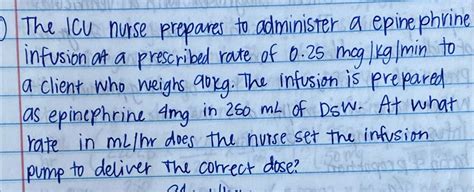 The ICU nurse prepares to administer a epinephrine
infusion at a prescribed rate of 0.25 mcg/kg/min to
a client who weighs 90kg. The infusion is prepared
as epinephrine 4mg in 250 mL of D5W. At what
rate in mL/hr does the nurse set the infusion
pump to deliver the correct dose?